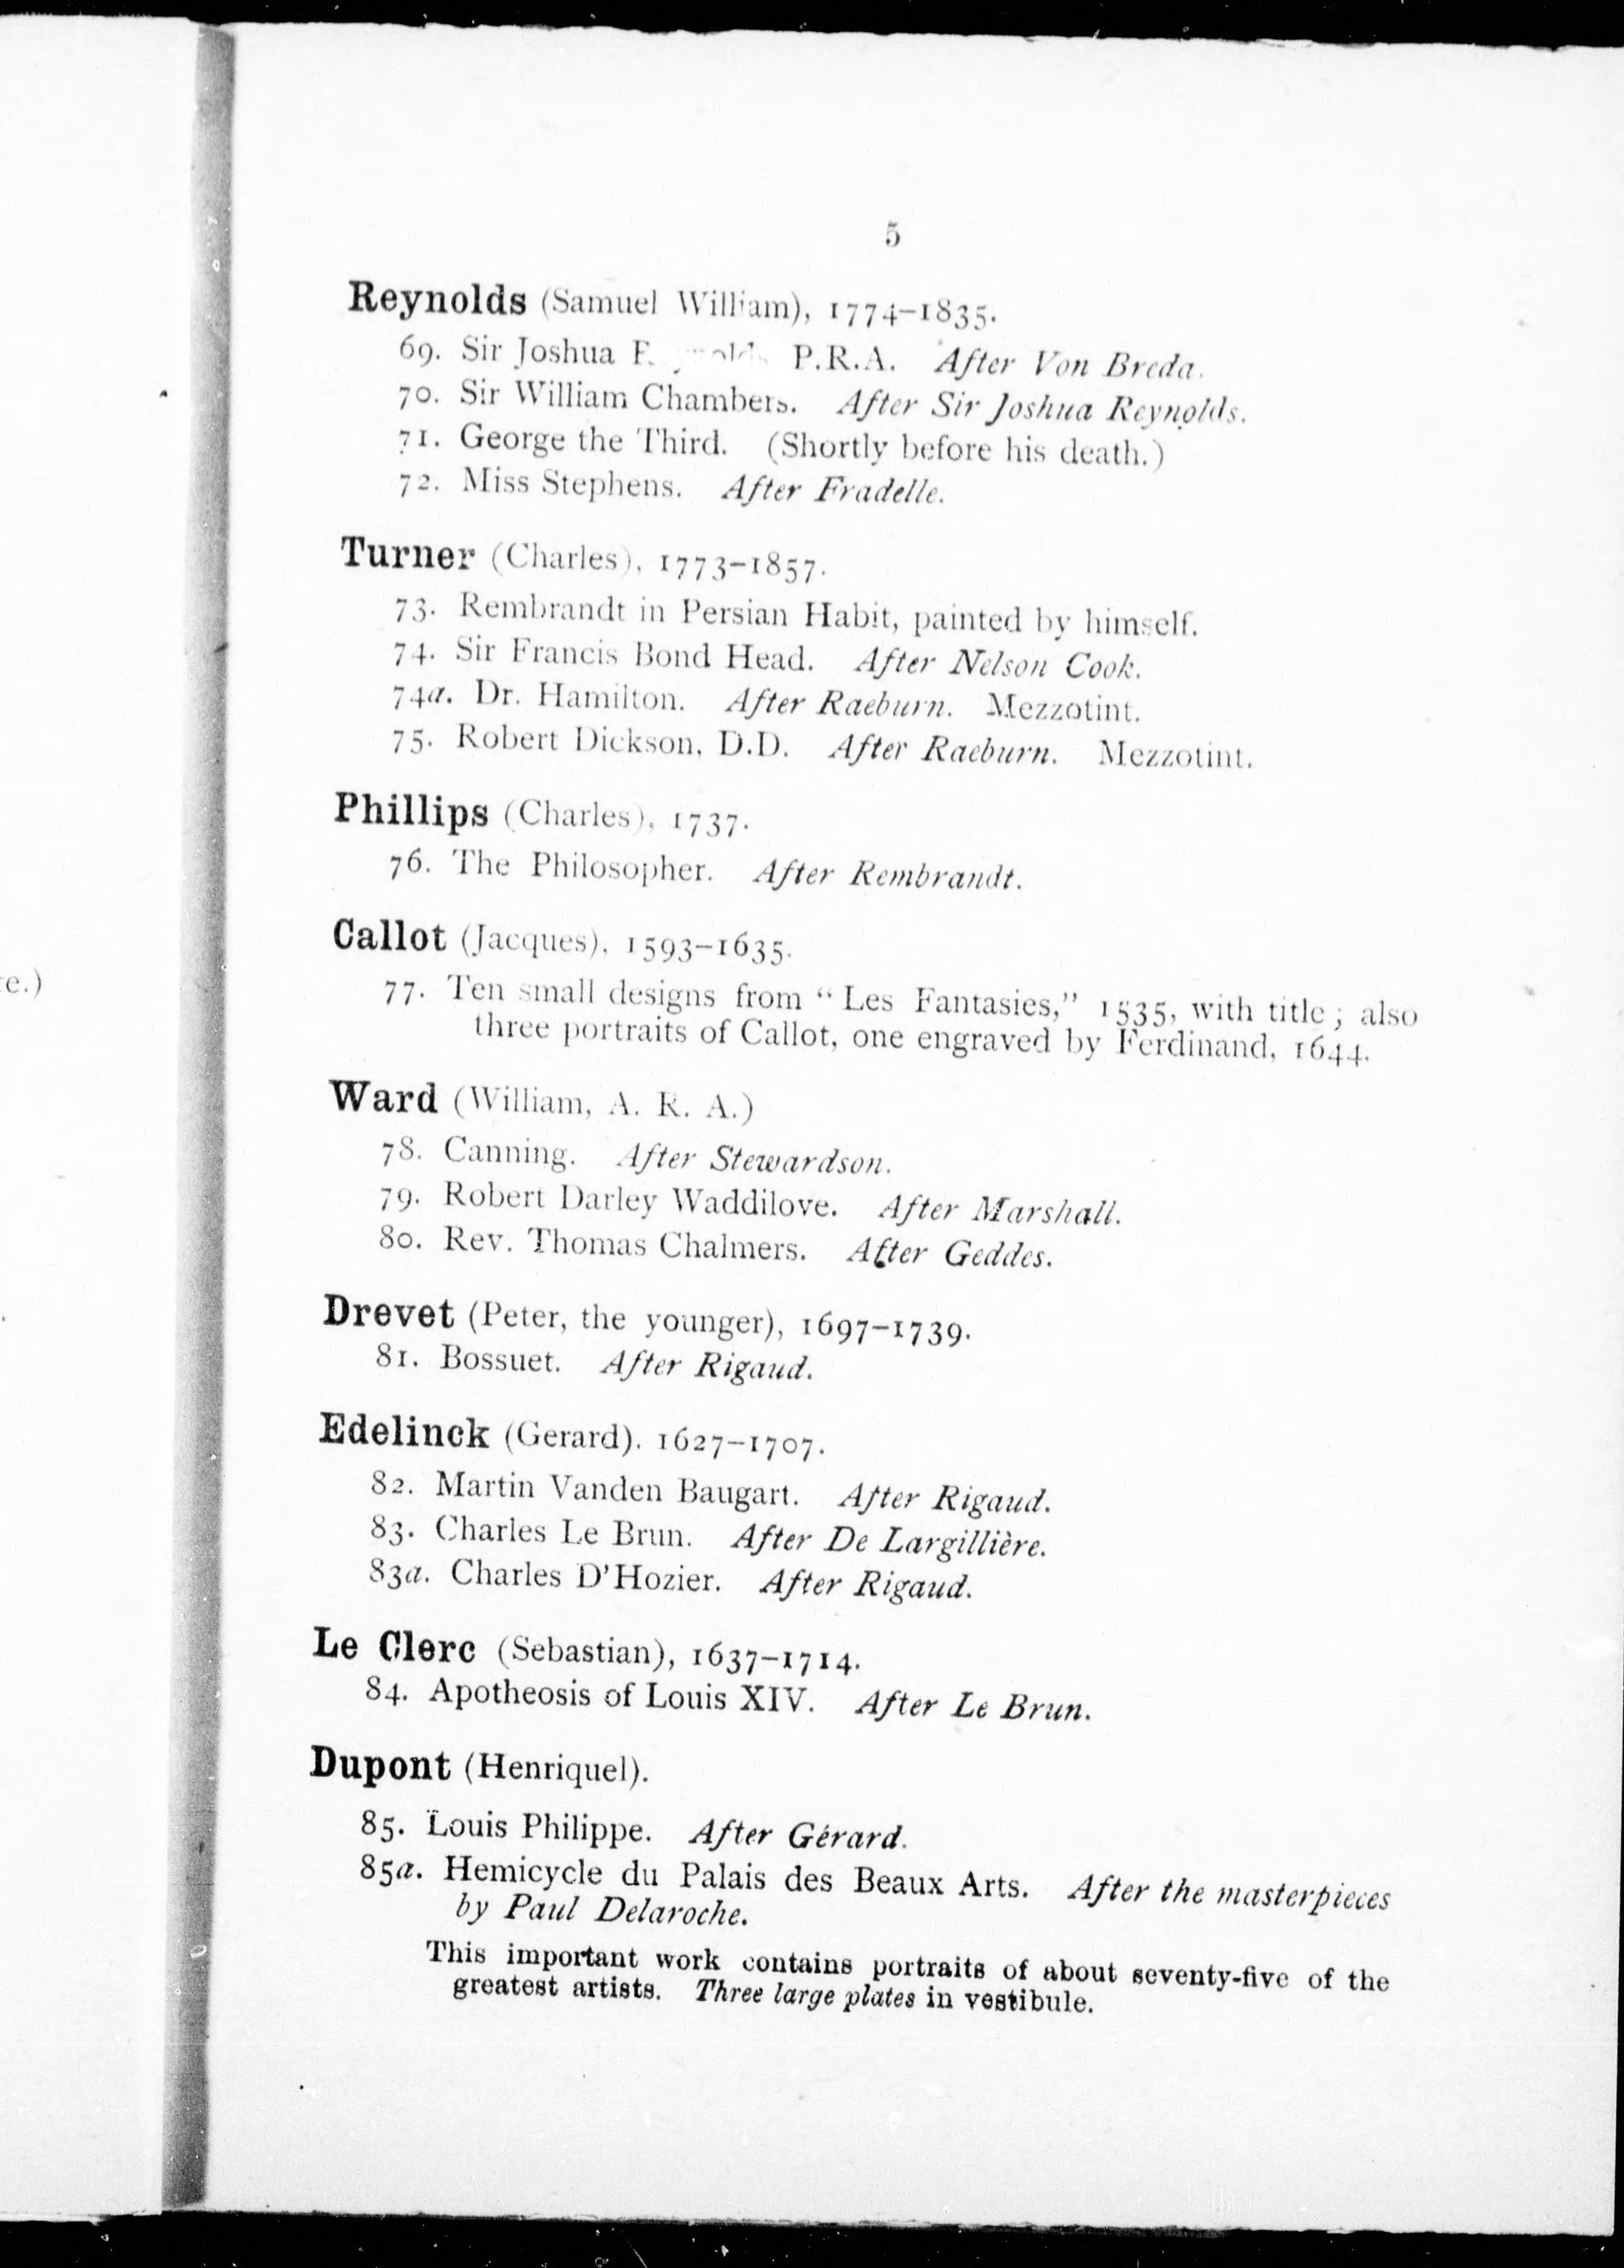 5
Reynolds (Samuel William), 1774–1835.
69. Sir Joshua Reynolds P.R.A. After Von Breda.
70. Sir William Chambers. After Sir Joshua Reynolds.
71. George the Third. (Shortly before his death.)
72. Miss Stephens. After Fradelle.
Turner (Charles), 1773–1857.
73. Rembrandt in Persian Habit, painted by himself.
74. Sir Francis Bond Head. After Nelson Cook.
74a. Dr. Hamilton. After Raeburn. Mezzotint.
75. Robert Dickson, D.D. After Raeburn. Mezzotint.
Phillips (Charles), 1737.
76. The Philosopher. After Rembrandt.
Callot (Jacques), 1593–1635.
e.)
77. Ten small designs from “Les Fantasies,” 1535, with title; also
three portraits of Callot, one engraved by Ferdinand, 1644.
Ward (William, A. R. A.)
78. Canning. After Stewardson.
79. Robert Darley Waddilove. After Marshall.
80. Rev. Thomas Chalmers. After Geddes.
Drevet (Peter, the younger), 1697–1739.
81. Bossuet. After Rigaud.
Edelinck (Gerard). 1627–1707.
82. Martin Vanden Baugart. After Rigaud.
83. Charles Le Brun. After De Largillière.
83a. Charles D'Hozier. After Rigaud.
Le Clerc (Sebastian), 1637–1714.
84. Apotheosis of Louis XIV. After Le Brun.
Dupont (Henriquel).
85. Louis Philippe. After Gérard.
85a. Hemicycle du Palais des Beaux Arts. After the masterpieces
by Paul Delaroche.
This important work contains portraits of about seventy-five of the
greatest artists. Three large plates in vestibule.